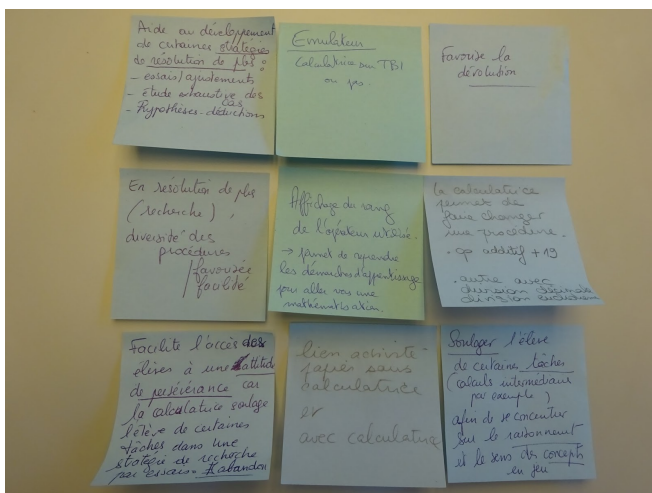 Aide au développement
de certaines stratégies
de résolution de pbs :
- essais/ajustements
- étude exhaustive des
cas
- Hypothèses-déductions
Emulateur
Calculatrice sur TBI
ou pas.
Favorise la
dévolution
En résolution de pbs
(recherche),
diversité des
procédures
favorisée
facilité
Affichage du rang
de l'opérateur utilisée.
→ permet de reprendre
les démarches d'apprentissage
pour aller vers une
mathématisation.
La calculatrice
permet de
faire changer
une procédure.
. additif +19
. autre avec
division décimale
division euclidienne
Facilite l'accès des
élèves à une attitude
de persévérance car
la calculatrice soulage
l'élève de certaines
tâches dans une
stratégie de recherche
par essais. ≠ abandon
lien activité
papier sans
calculatrice
et
avec calculatrice
Soulager l'élève
de certaines tâches
(calculs intermédiaires
par exemple)
afin de se concentrer
sur le raisonnement
et le sens des concepts
en jeu